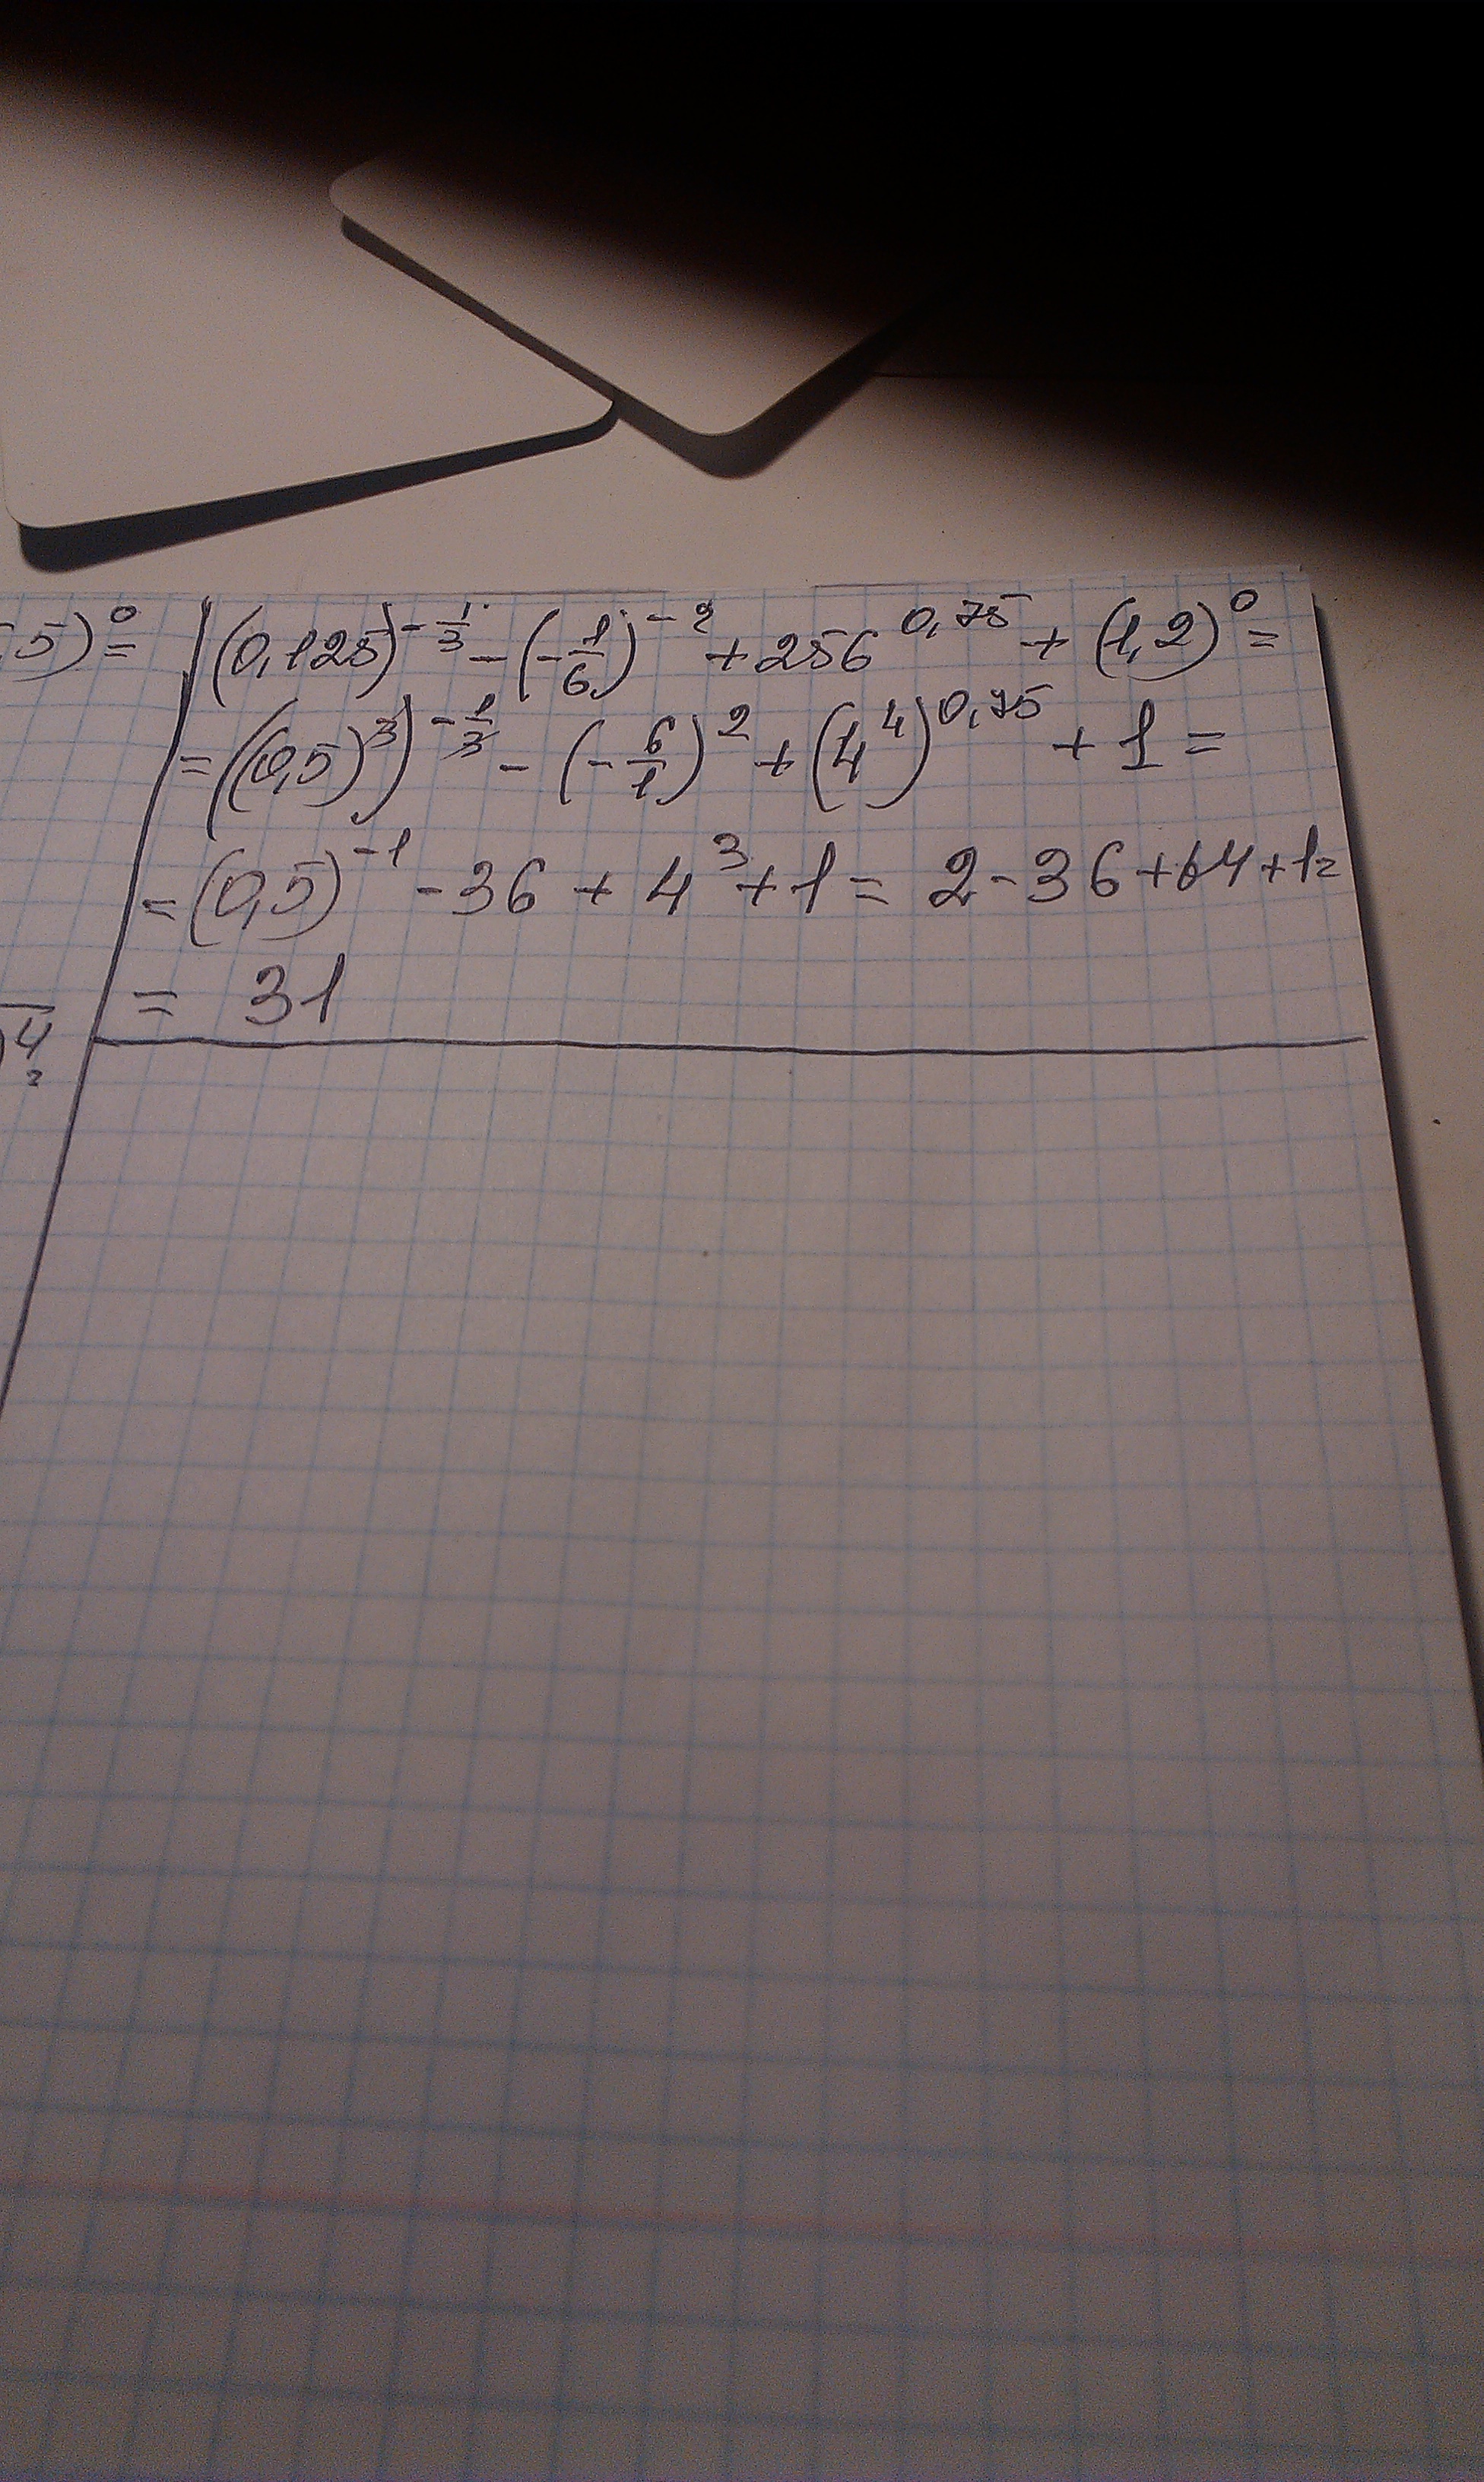 ,5)⁰=
(0,125)^{-1/3} - (-1/6)^{-2} + 256^{0,75} + (1,2)^0 =
= ((0,5)^3)^{-1/3} - (-6/1)^2 + (4^4)^{0,75} + 1 =
= (0,5)^{-1} - 36 + 4^3 + 1 = 2 - 36 + 64 + 1 =
= 31
)4